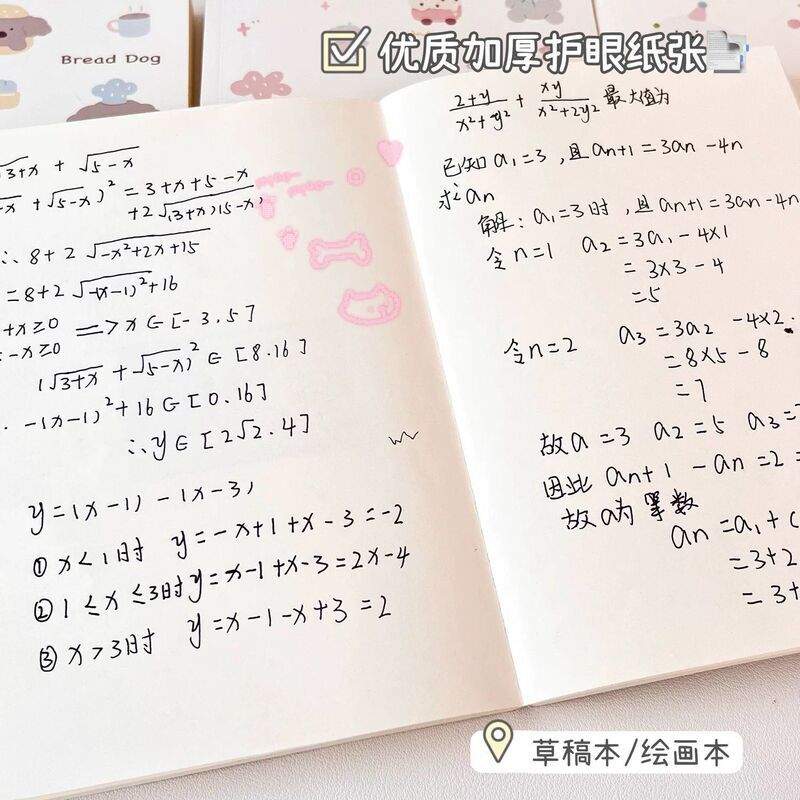 Bread Dog
优质加厚护眼纸张
√3+x + √5-x
+ √5-x)² = 3+x+5-x
+2√(3+x)(5-x)
∴ 8+2√-x²+2x+15
=8+2√-(x-1)²+16
+x≥0
-x≥0 => x∈[-3.5]
(√3+x + √5-x)² ∈ [8.16]
-(x-1)²+16∈[0.16]
∴y∈[2√2.4]
y=|x-1|-|x-3|
① x<1时 y=-x+1+x-3=-2
② 1≤x≤3时y=x-1+x-3=2x-4
③ x>3时 y=x-1-x+3=2
2+y/x²+y² + xy/x²+2y² 最大值为
已知a₁=3,且an+1=3an-4n
求an
解:a₁=3时,且an+1=3an-4n
令n=1 a₂=3a₁-4×1
=3×3-4
=5
令n=2 a₃=3a₂-4×2.
=8×5-8
=7
故a=3 a₂=5 a₃=7
因此 an+1-an=2=
故a为等数
an=a₁+(
=3+2
=3+
草稿本/绘画本